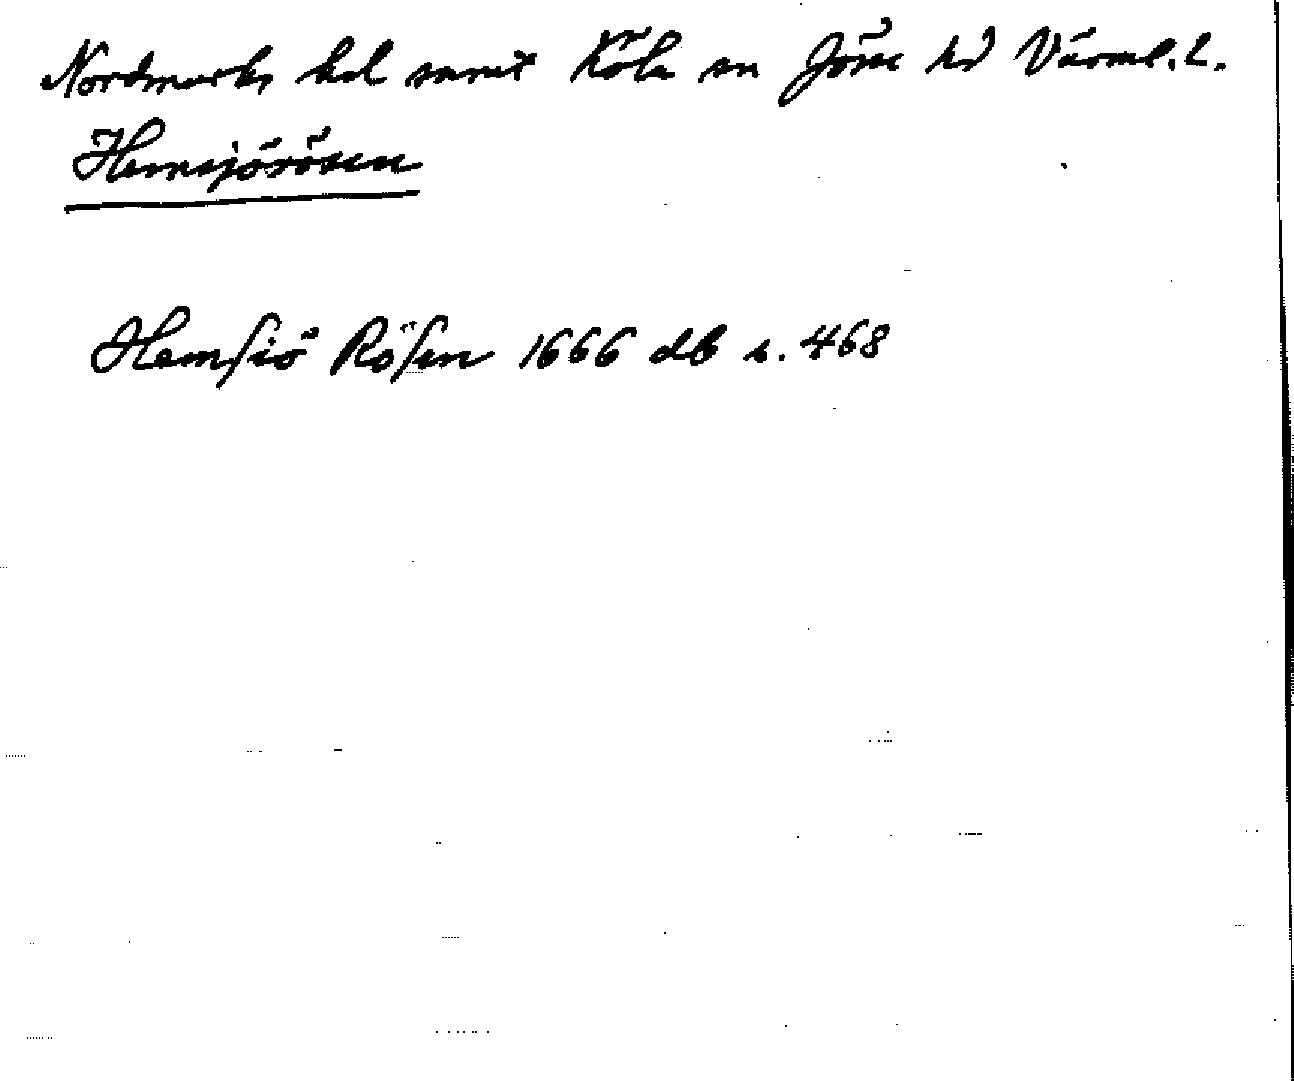 Nordmarks hd samt Köla sn Jösse hd Värml. l.
Hemsjörösen
Hemsiö Rösen 1666 db s. 468